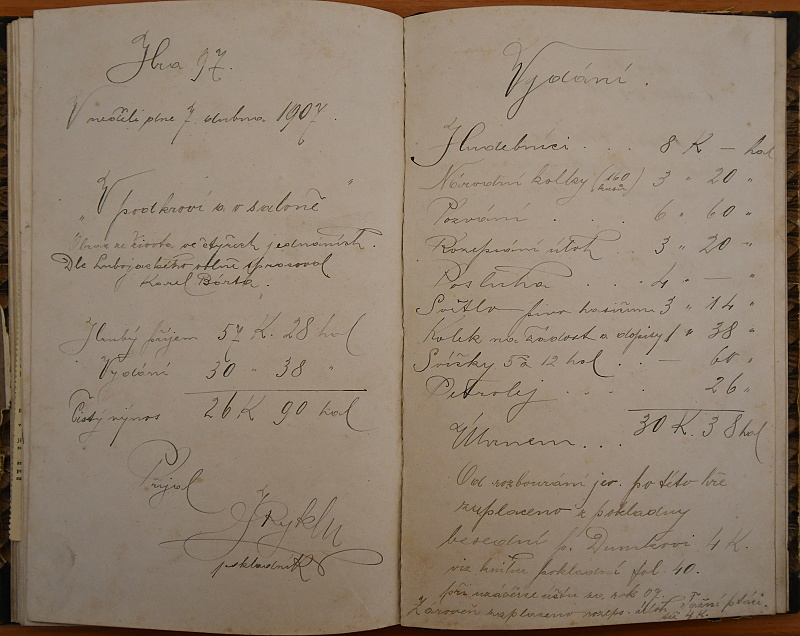 Hra 97.
V neděli dne 7. dubna 1907.
„V podkroví a v saloně"
Obraz ze života ve čtyřech jednáních.
Dle Lubojackého volně spracoval
Karel Bárta.
Hrubý příjem 57 K. 28 hal
Vydání 30 " 38 "
Čistý výnos 26 K 90 hal
Přijal
pokladník
Vydání.
Hudebníci . . . 8 K — hal
Národní kolky (160 kusů) 3 " 20 "
Pozvání . . . . 6 " 60 "
Rozepsání úloh . . 3 " 20 "
Posluha . . . 4 " — "
Světlo pivo hasičům 3 " 14 "
Kolek na žádost a dopisy 1 " 38 "
Svíčky 5 à 12 hal . . — 60 "
Petrolej . . . . . 26 "
Úhrnem . . . 30 K. 38 hal
Od rozbourání jev. po této hře
zaplaceno z pokladny
besední p. Dumkovi 4 K.
viz knihu pokladní fol. 40.
při uzávěrce účtu za rok 07.
Zároveň zaplaceno rozeps. úloh
4 K.